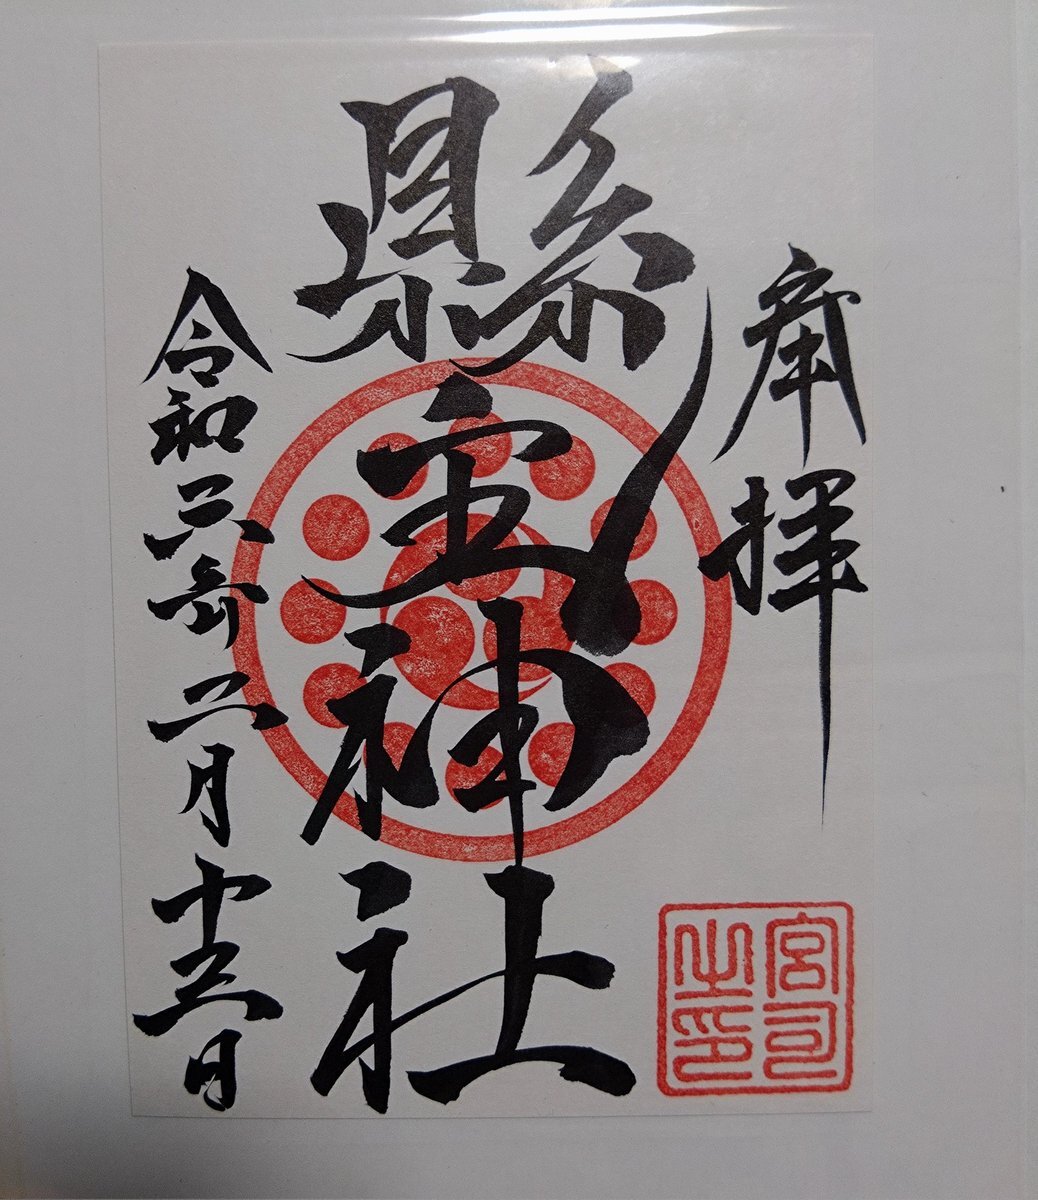 奉拝
縣主神社
令和六年二月十三日
宮司之印